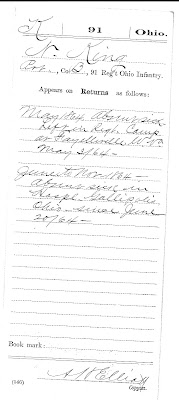 K 91 Ohio.
N. King
Pvt., Co. B, 91 Reg't Ohio Infantry.
Appears on Returns as follows:
May/64 Absent sick
left in Regt. Camp
at Fayetteville W. Va
May 3/64 -
June to Nov. 1864 -
Absent sick in
Hospl. Gallipolis
Ohio since June
20/64 -
Book mark:
A W Elliott
(546) Copyist.